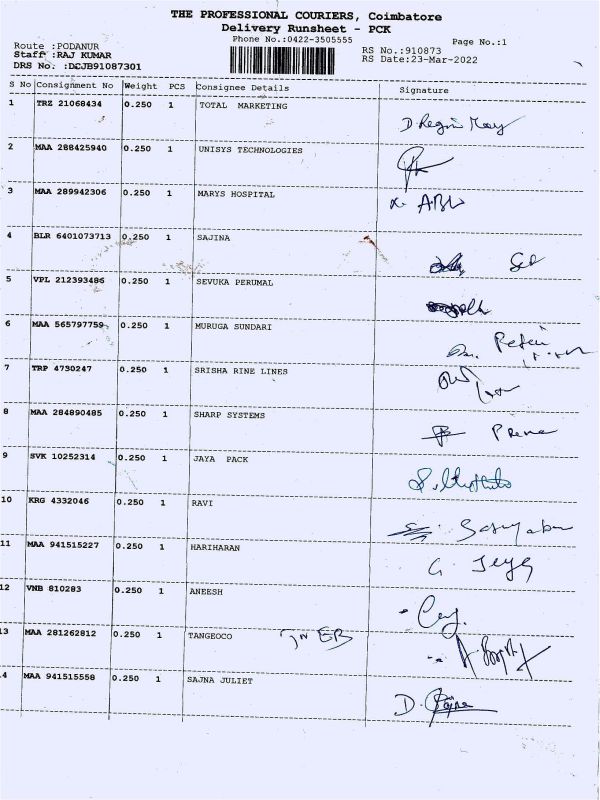 THE PROFESSIONAL COURIERS, Coimbatore
Delivery Runsheet - PCK
Phone No.:0422-3505555
Page No.:1
Route :PODANUR
RS No.:910873
Staff :RAJ KUMAR
RS Date:23-Mar-2022
DRS No. :DCJB91087301
S No Consignment No Weight PCS Consignee Details Signature
1 TRZ 21068434 0.250 1 TOTAL MARKETING
2 MAA 288425940 0.250 1 UNISYS TECHNOLOGIES
3 MAA 289942306 0.250 1 MARYS HOSPITAL
4 BLR 6401073713 0.250 1 SAJINA
5 VPL 212393486 0.250 1 SEVUKA PERUMAL
6 MAA 565797759 0.250 1 MURUGA SUNDARI
7 TRP 4730247 0.250 1 SRISHA RINE LINES
8 MAA 284890485 0.250 1 SHARP SYSTEMS
9 SVK 10252314 0.250 1 JAYA PACK
10 KRG 4332046 0.250 1 RAVI
11 MAA 941515227 0.250 1 HARIHARAN
12 VNB 810283 0.250 1 ANEESH
13 MAA 281262812 0.250 1 TANGEOCO
4 MAA 941515558 0.250 1 SAJNA JULIET